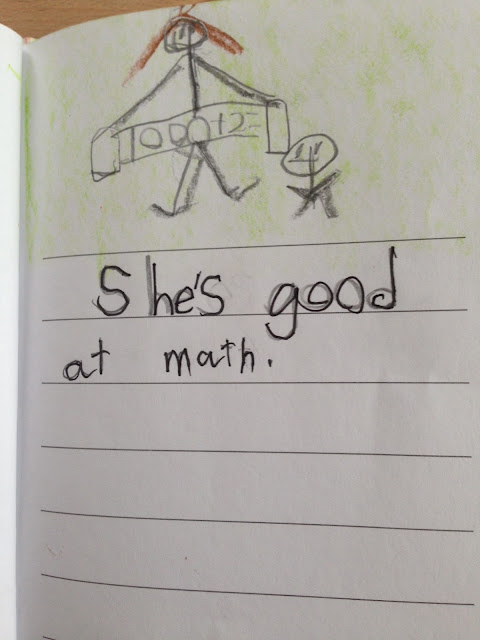 1000+2=
She's good
at math.